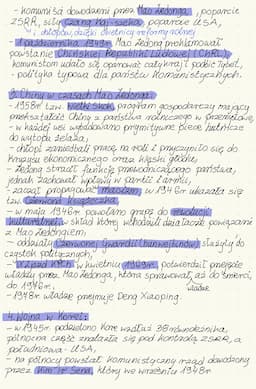 - komuniści dowodzeni przez Mao Zedonga, poparcie
ZSRR, siły Czang Kaj-szeka, poparcie USA,
↳ chłopów, dzięki obietnicy reformy rolnej
- 1 października 1949r. Mao Zedong proklamował
powstanie Chińskiej Republiki Ludowej (ChRL),
komunistom udało się opanować cały kraj i podbić Tybet,
- polityka typowa dla państw komunistycznych.
3. Chiny w czasach Mao Zedonga:
- 1958r. tzw. wielki skok, program gospodarczy mający
przekształcić Chiny z państwa rolniczego w przemysłowe,
- w każdej wsi wybudowano prymitywne piece hutnicze
do wytopu żelaza,
- chłopi zaniedbali pracę na roli i przyczyniło się do
kryzysu ekonomicznego oraz klęski głodu,
- Zedong stracił funkcję przewodniczącego państwa,
jednak zachował wpływy w partii i armii,
- zaczął propagować maoizm, w 1964r. ukazała się
tzw. czerwona książeczka,
- w maju 1966r. powołano grupę do rewolucji
kulturalnej, w skład której wchodzili działacze powiązani
z Mao Zedongiem,
- oddziały Czerwonej Gwardii (hunwejbinów) służyły do
czystek politycznych,
- IX zjazd KPCh w kwietniu 1969r. potwierdził przejęcie
władzy przez Mao Zedonga, którą sprawował aż do śmierci,
do 1976r.
- 1978r. władzę przejmuje Deng Xiaoping.
4. Wojna w Korei:
- w 1945r. podzielono Koreę wzdłuż 38 równoleżnika,
północna część znalazła się pod kontrolą ZSRR, a
południowa - USA,
- na północy powstał komunistyczny rząd dowodzony
przez Kim Ir Sena, który we wrześniu 1948r.